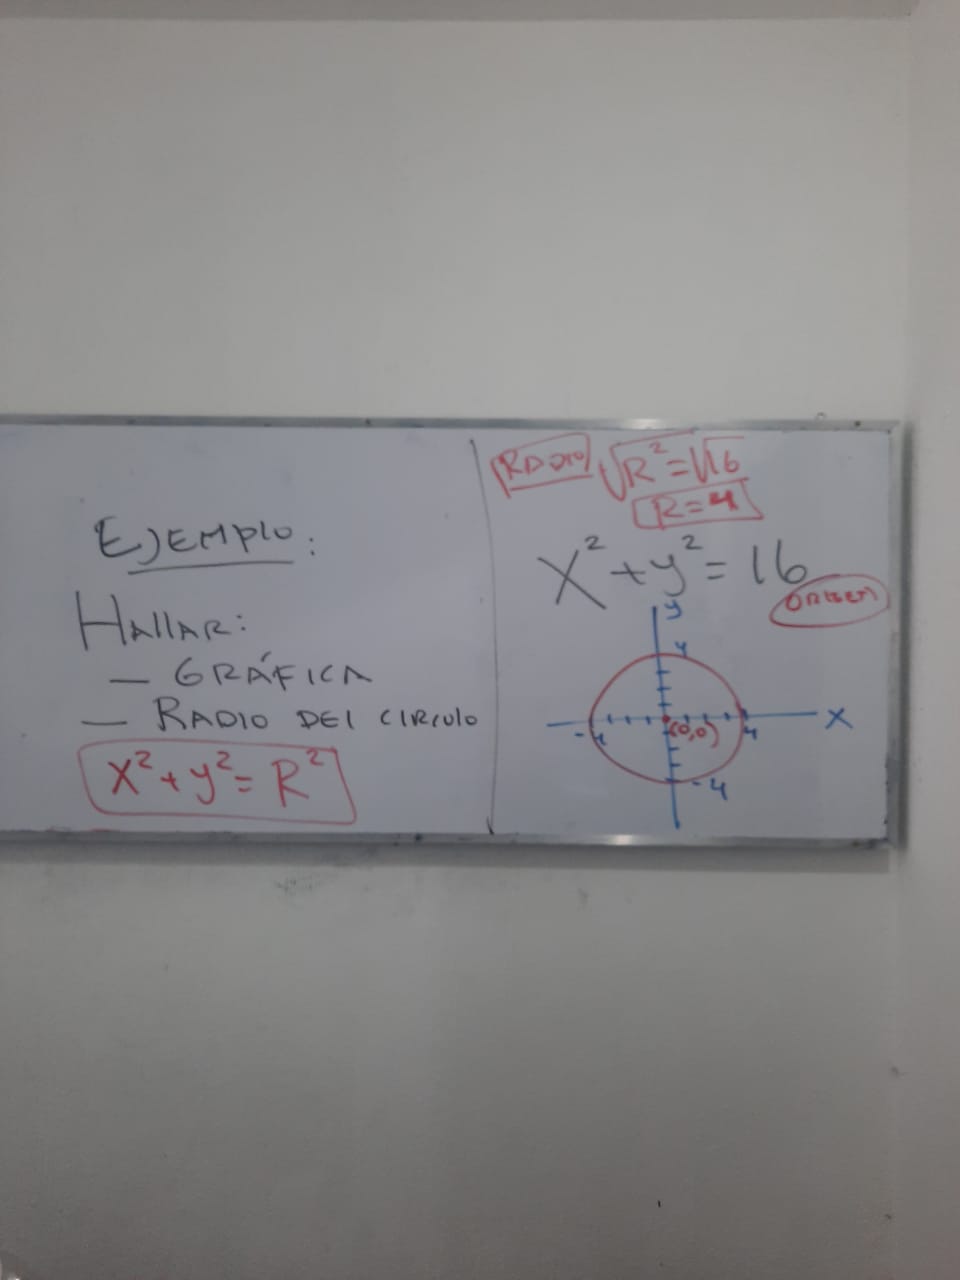 EJEMPLO:
HALLAR:
— GRÁFICA
— RADIO DEL CIRCULO
X² + y² = R²
RADIO √R² = √16
R = 4
X² + y² = 16
ORIGEN
y
4
-4 (0,0) 4 X
-4